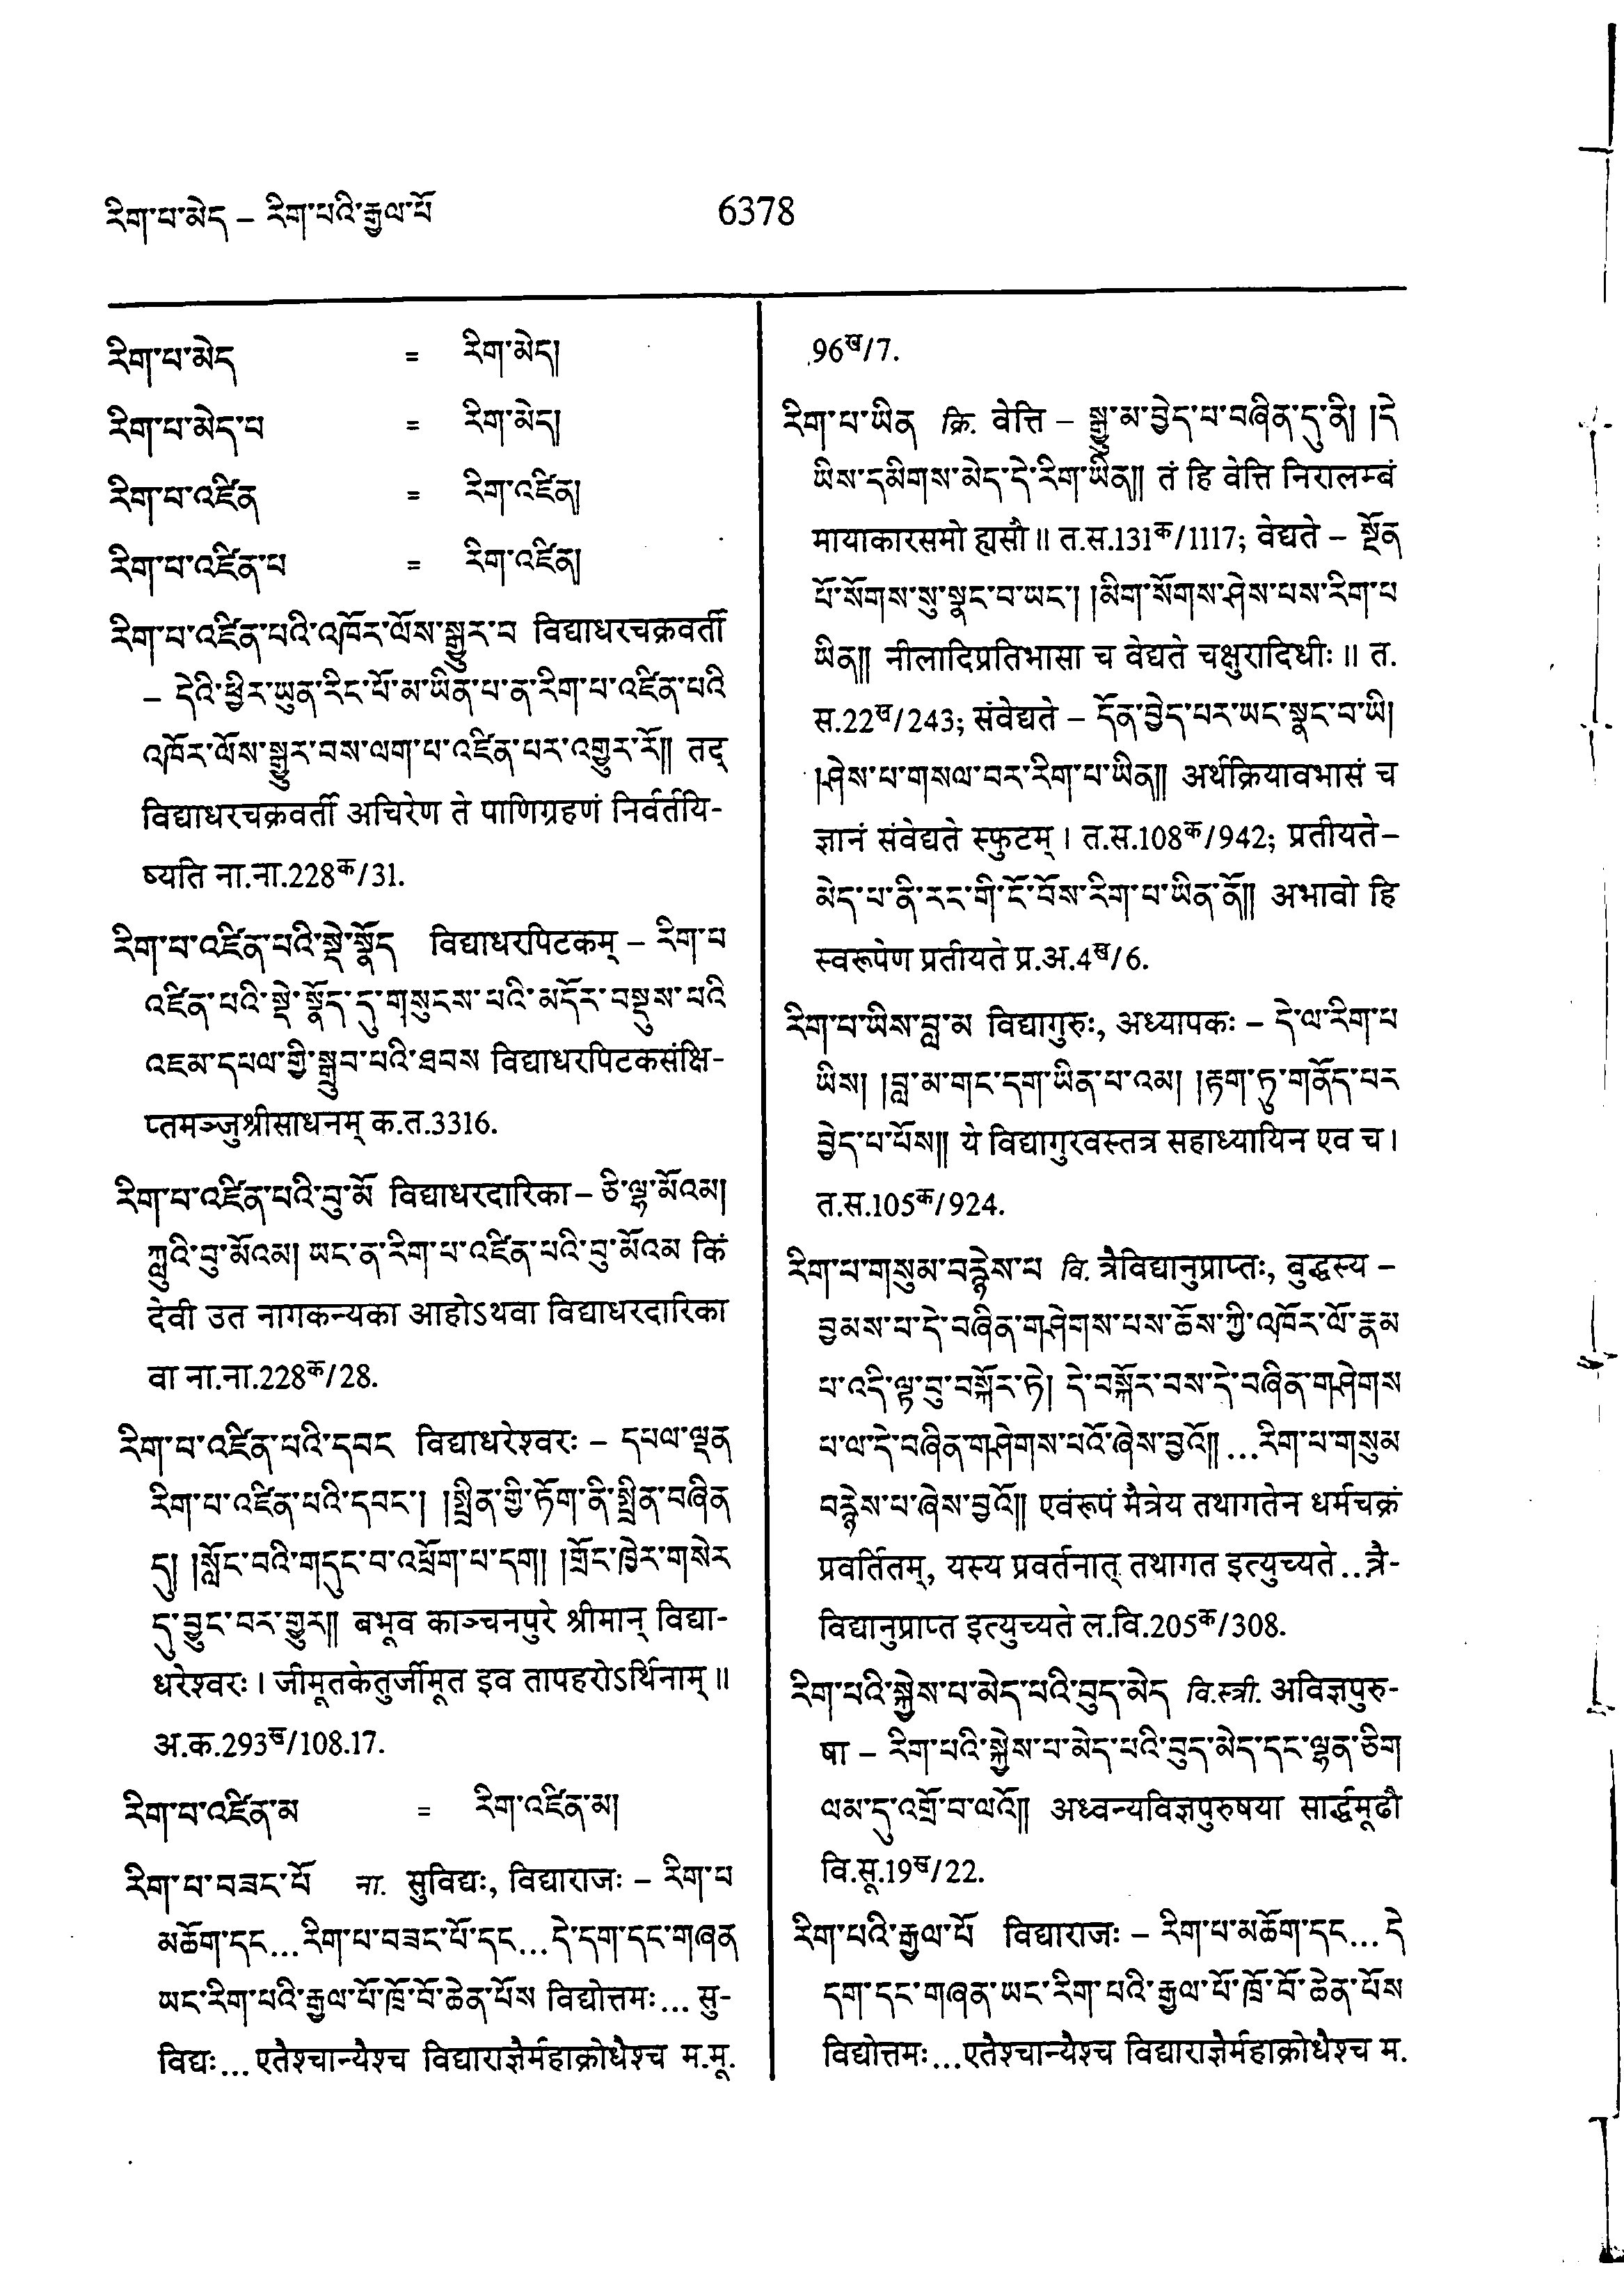 རིག་པ་མེད – རིག་པའི་རྒྱལ་པོ
6378
རིག་པ་མེད = རིག་མེད།
རིག་པ་མེད་པ = རིག་མེད།
རིག་པ་འཛིན = རིག་འཛིན།
རིག་པ་འཛིན་པ = རིག་འཛིན།
རིག་པ་འཛིན་པའི་འཁོར་ལོས་སྒྱུར་བ विद्याधरचक्रवर्ती
– དེའི་ཕྱིར་ཡུན་རིང་པོ་མ་ཡིན་པ་ན་རིག་པ་འཛིན་པའི
འཁོར་ལོས་སྒྱུར་བས་ལག་པ་འཛིན་པར་འགྱུར་རོ༎ तद्
विद्याधरचक्रवर्ती अचिरेण ते पाणिग्रहणं निर्वर्तयि-
ष्यति ना.ना.228क/31.
རིག་པ་འཛིན་པའི་སྡེ་སྣོད विद्याधरपिटकम् – རིག་པ
འཛིན་པའི་སྡེ་སྣོད་དུ་གསུངས་པའི་མདོར་བསྡུས་པའི
འཇམ་དཔལ་གྱི་སྒྲུབ་པའི་ཐབས विद्याधरपिटकसंक्षि-
प्तमञ्जुश्रीसाधनम् क.त.3316.
རིག་པ་འཛིན་པའི་བུ་མོ विद्याधरदारिका – ཅི་ལྷ་མོའམ།
ཀླུའི་བུ་མོའམ། ཡང་ན་རིག་པ་འཛིན་པའི་བུ་མོའམ किं
देवी उत नागकन्यका आहोऽथवा विद्याधरदारिका
वा ना.ना.228क/28.
རིག་པ་འཛིན་པའི་དབང विद्याधरेश्वरः – དཔལ་ལྡན
རིག་པ་འཛིན་པའི་དབང་། །སྤྲིན་གྱི་ཏོག་ནི་སྤྲིན་བཞིན
དུ། །སློང་བའི་གདུང་བ་འཕྲོག་པ་དག། །གྲོང་ཁྱེར་གསེར
དུ་བྱུང་བར་གྱུར༎ बभूव काञ्चनपुरे श्रीमान् विद्या-
धरेश्वरः । जीमूतकेतुर्जीमूत इव तापहरोऽर्थिनाम् ॥
अ.क.293ख/108.17.
རིག་པ་འཛིན་མ = རིག་འཛིན་མ།
རིག་པ་བཟང་པོ ना. सुविद्यः, विद्याराजः – རིག་པ
མཆོག་དང...རིག་པ་བཟང་པོ་དང...དེ་དག་དང་གཞན
ཡང་རིག་པའི་རྒྱལ་པོ་ཁྲོ་བོ་ཆེན་པོས विद्योत्तमः... सु-
विद्यः... एतैश्चान्यैश्च विद्याराज्ञैर्महाक्रोधैश्च म.मू.
96ख/7.
རིག་པ་ཡིན क्रि. वेत्ति – སྒྱུ་མ་བྱེད་པ་བཞིན་དུ་ནི། །དེ
ཡིས་དམིགས་མེད་དེ་རིག་ཡིན༎ तं हि वेत्ति निरालम्बं
मायाकारसमो ह्यसौ ॥ त.स.131क/1117; वेद्यते – སྔོན
པོ་སོགས་སུ་སྣང་བ་ཡང་། །མིག་སོགས་ཤེས་པས་རིག་པ
ཡིན༎ नीलादिप्रतिभासा च वेद्यते चक्षुरादिधीः ॥ त.
स.22ख/243; संवेद्यते – དོན་བྱེད་པར་ཡང་སྣང་བ་ཡི།
།ཤེས་པ་གསལ་བར་རིག་པ་ཡིན༎ अर्थक्रियावभासं च
ज्ञानं संवेद्यते स्फुटम् । त.स.108क/942; प्रतीयते –
མེད་པ་ནི་རང་གི་ངོ་བོས་རིག་པ་ཡིན་ནོ༎ अभावो हि
स्वरूपेण प्रतीयते प्र.अ.4ख/6.
རིག་པ་ཡིས་བླ་མ विद्यागुरुः, अध्यापकः – དེ་ལ་རིག་པ
ཡིས། །བླ་མ་གང་དག་ཡིན་པ་འམ། །རྟག་ཏུ་གནོད་པར
བྱེད་པ་པོས༎ ये विद्यागुरवस्तत्र सहाध्यायिन एव च ।
त.स.105क/924.
རིག་པ་གསུམ་བརྙེས་པ वि. त्रैविद्यानुप्राप्तः, बुद्धस्य –
བྱམས་པ་དེ་བཞིན་གཤེགས་པས་ཆོས་ཀྱི་འཁོར་ལོ་རྣམ
པ་འདི་ལྟ་བུ་བསྐོར་ཏེ། དེ་བསྐོར་བས་དེ་བཞིན་གཤེགས
པ་ལ་དེ་བཞིན་གཤེགས་པའོ་ཞེས་བྱའོ༎ ...རིག་པ་གསུམ
བརྙེས་པ་ཞེས་བྱའོ༎ एवंरूपं मैत्रेय तथागतेन धर्मचक्रं
प्रवर्तितम्, यस्य प्रवर्तनात् तथागत इत्युच्यते...त्रै-
विद्यानुप्राप्त इत्युच्यते ल.वि.205क/308.
རིག་པའི་སྐྱེས་པ་མེད་པའི་བུད་མེད वि.स्त्री. अविज्ञपुरु-
षा – རིག་པའི་སྐྱེས་པ་མེད་པའི་བུད་མེད་དང་ལྷན་ཅིག
ལམ་དུ་འགྲོ་བ་ལའོ༎ अध्वन्यविज्ञपुरुषया सार्द्धमूढौ
वि.सू.19ख/22.
རིག་པའི་རྒྱལ་པོ विद्याराजः – རིག་པ་མཆོག་དང... དེ
དག་དང་གཞན་ཡང་རིག་པའི་རྒྱལ་པོ་ཁྲོ་བོ་ཆེན་པོས
विद्योत्तमः...एतैश्चान्यैश्च विद्याराज्ञैर्महाक्रोधैश्च म.